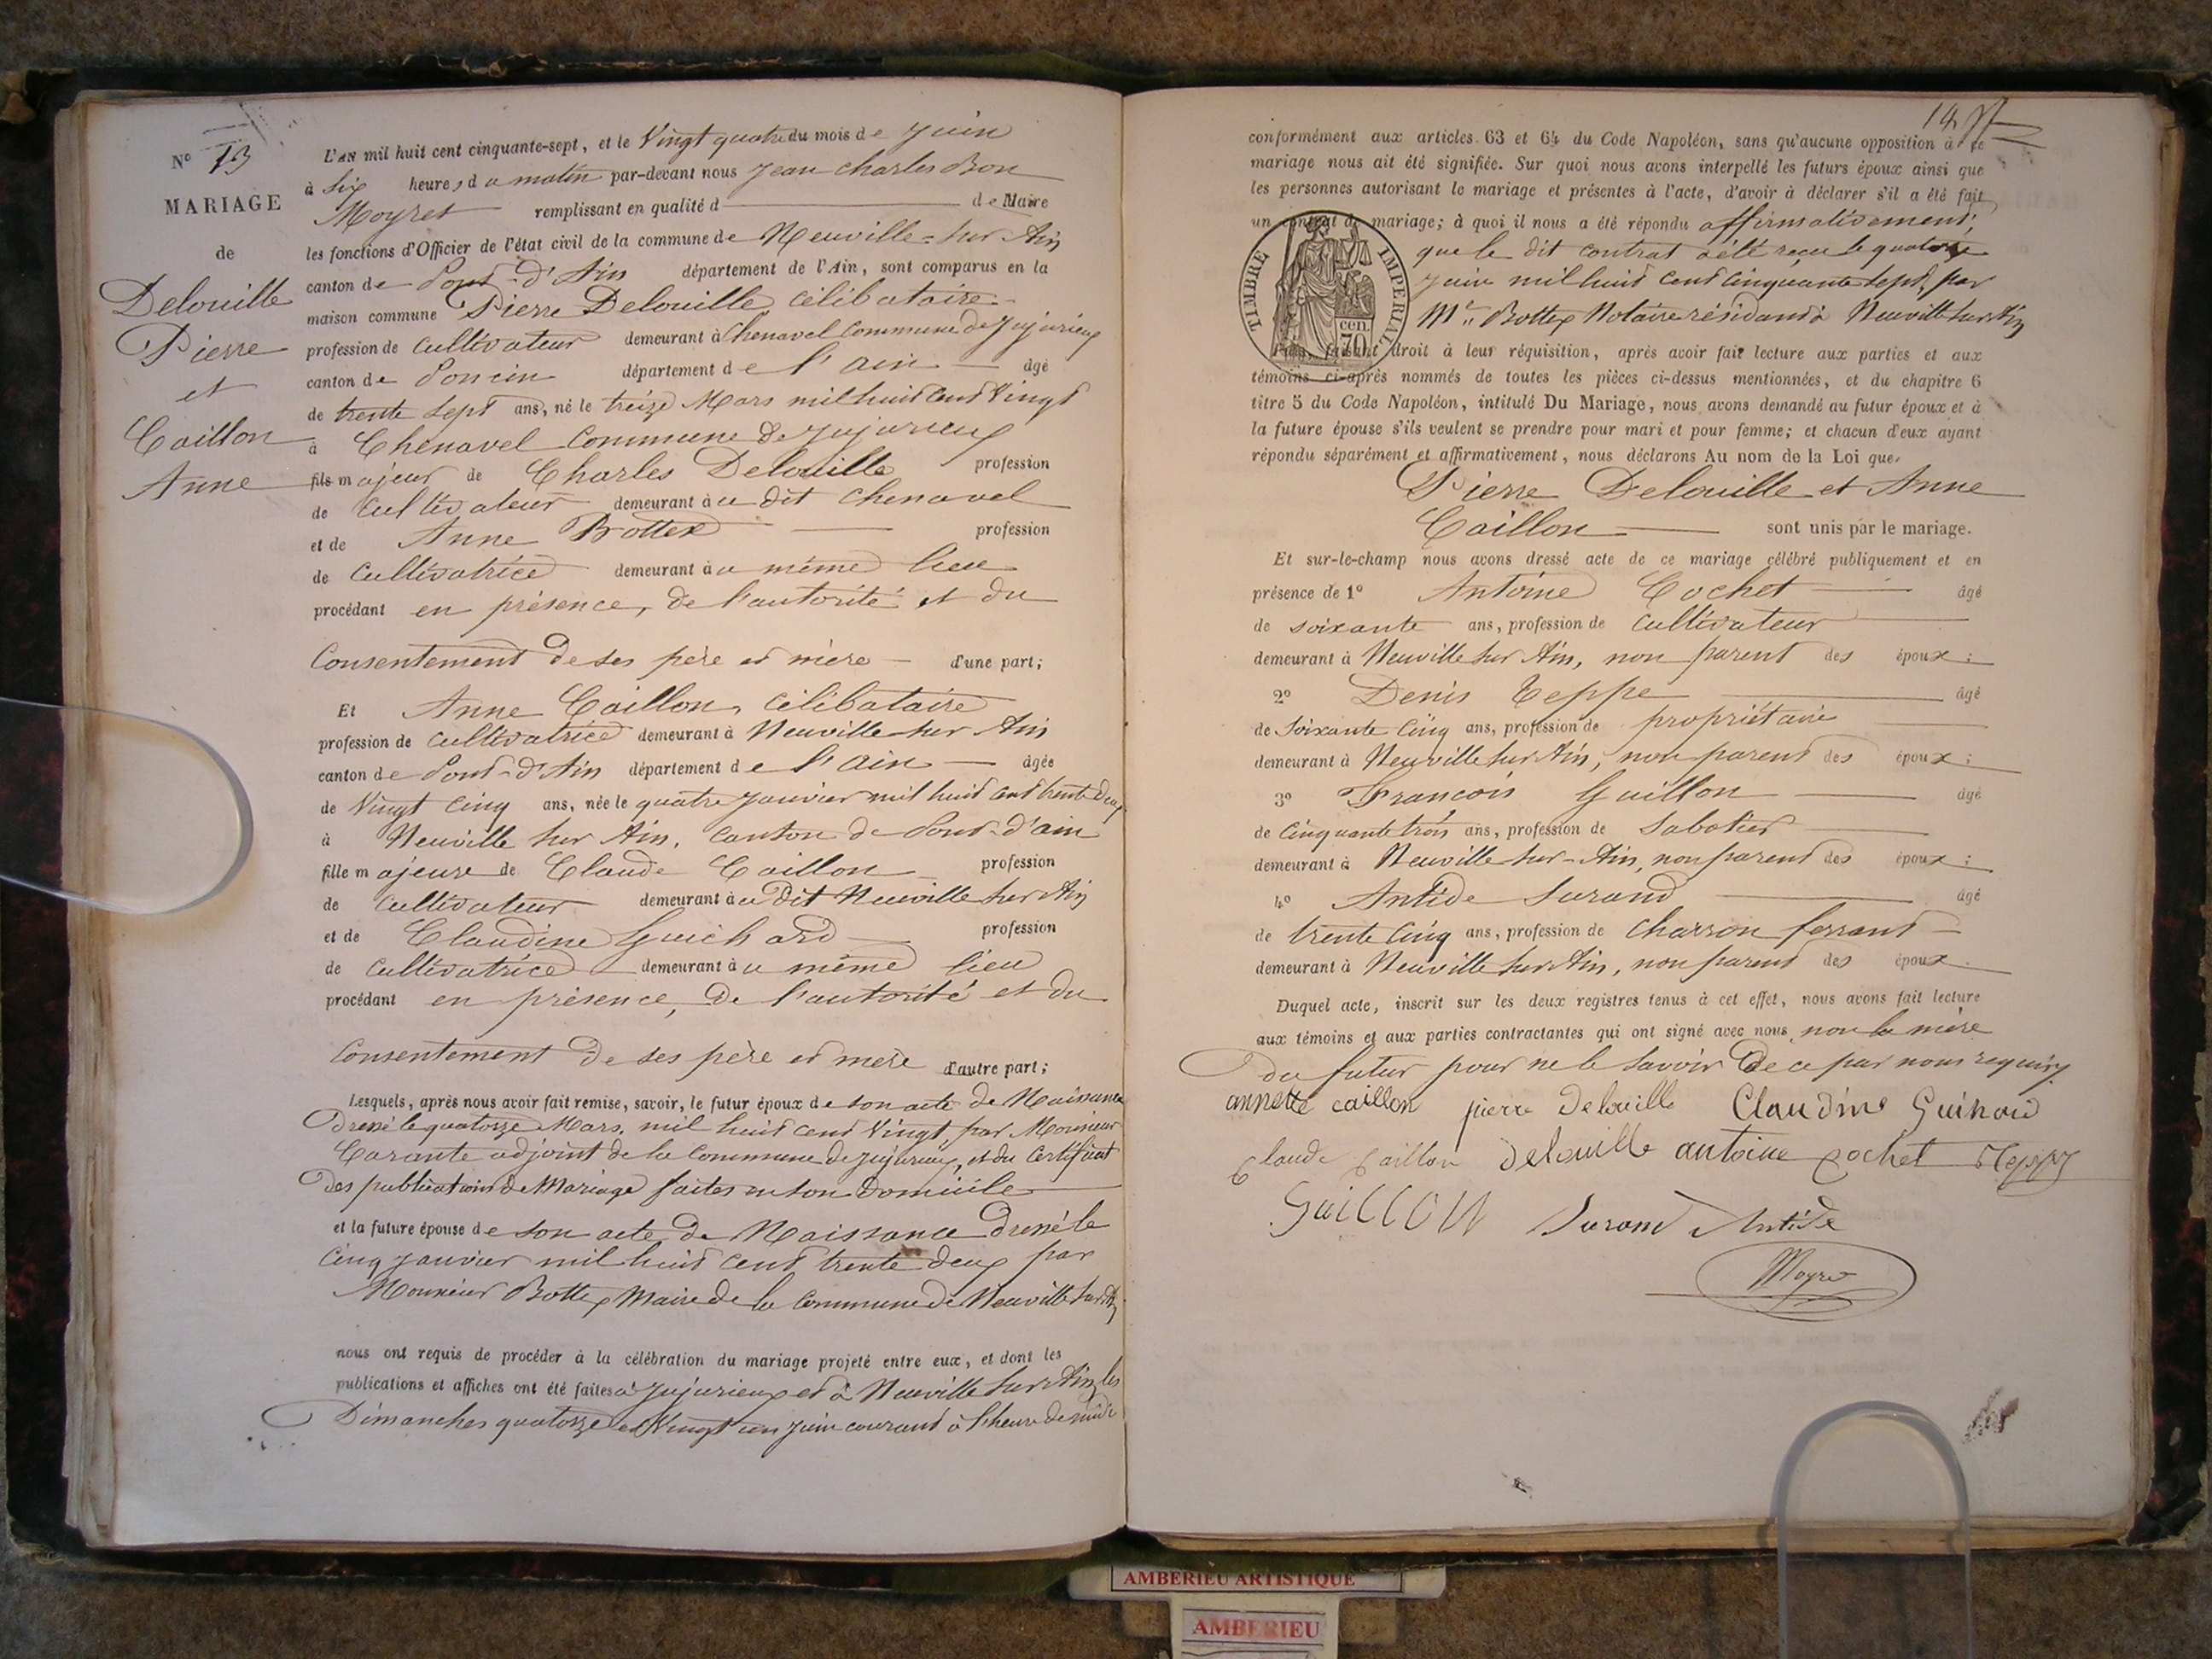 N° 13
MARIAGE
de
Delouille
Pierre
et
Caillon
Anne
L'an mil huit cent cinquante-sept, et le Vingt quatre du mois de Juin
à Six heures du matin par-devant nous Jean Charles Bon
Moyret remplissant en qualité d de Maire
les fonctions d'Officier de l'état civil de la commune de Neuville-sur Ain
canton de Pont-d'Ain département de l'Ain, sont comparus en la
maison commune Pierre Delouille célibataire
profession de cultivateur demeurant à Chenavel commune de Jujurieux
canton de Poncin département de l'ain âgé
de trente sept ans, né le treize Mars mil huit cent Vingt
à Chenavel commune de Jujurieux
fils majeur de Charles Delouille profession
de cultivateur demeurant au dit Chenavel
et de Anne Bottex profession
de cultivatrice demeurant au même lieu
procédant en présence, de l'autorité et du
Consentement de ses père et mère d'une part;
Et Anne Caillon, célibataire
profession de cultivatrice demeurant à Neuville sur Ain
canton de Pont-d'Ain département de l'ain âgée
de Vingt cinq ans, née le quatre Janvier mil huit cent trente deux
à Neuville sur Ain, canton de Pont-d'ain
fille majeure de Claude Caillon profession
de cultivateur demeurant au dit Neuville sur Ain
et de Claudine Guichard profession
de cultivatrice demeurant au même lieu
procédant en présence, de l'autorité et du
Consentement de ses père et mère d'autre part;
Lesquels, après nous avoir fait remise, savoir, le futur époux de son acte de Naissance
Dressé le quatorze Mars, mil huit cent Vingt, par Monsieur
Carante adjoint de la Commune de Jujurieux, et du Certificat
Des publications de Mariage faites en son domicile
et la future épouse de son acte de Naissance dressé le
cinq Janvier mil huit cent trente deux par
Monsieur Bottex Maire de la Commune de Neuville sur Ain
nous ont requis de procéder à la célébration du mariage projeté entre eux, et dont les
publications et affiches ont été faites à Jujurieux et à Neuville sur Ain, les
Dimanches quatorze et Vingt un Juin courant à l'heure de midi
14
conformément aux articles 63 et 64 du Code Napoléon, sans qu'aucune opposition à ce
mariage nous ait été signifiée. Sur quoi nous avons interpellé les futurs époux ainsi que
les personnes autorisant le mariage et présentes à l'acte, d'avoir à déclarer s'il a été fait
un contrat de mariage; à quoi il nous a été répondu affirmativement;
que le dit contrat a été reçu le quatorze
Juin mil huit cent cinquante sept, par
Me Bottex Notaire résidant à Neuville sur Ain
TIMBRE IMPERIAL
cen.
70
Puis, faisant droit à leur réquisition, après avoir fait lecture aux parties et aux
témoins ci-après nommés de toutes les pièces ci-dessus mentionnées, et du chapitre 6
titre 5 du Code Napoléon, intitulé Du Mariage, nous avons demandé au futur époux et à
la future épouse s'ils veulent se prendre pour mari et pour femme; et chacun d'eux ayant
répondu séparément et affirmativement, nous déclarons Au nom de la Loi que
Pierre Delouille et Anne
Caillon sont unis par le mariage.
Et sur-le-champ nous avons dressé acte de ce mariage célébré publiquement et en
présence de 1° Antoine Cochet âgé
de soixante ans, profession de cultivateur
demeurant à Neuville sur Ain, non parent des époux;
2° Denis Teppe âgé
de Soixante cinq ans, profession de propriétaire
demeurant à Neuville sur Ain, non parent des époux;
3° François Guillon âgé
de Cinquante trois ans, profession de Sabotier
demeurant à Neuville sur-Ain, non parent des époux;
4° Antide Surand âgé
de trente cinq ans, profession de Charron ferrant
demeurant à Neuville sur Ain, non parent des époux
Duquel acte, inscrit sur les deux registres tenus à cet effet, nous avons fait lecture
aux témoins et aux parties contractantes qui ont signé avec nous, non la mère
du futur pour ne le savoir de ce par nous requise.
annette caillon pierre Delouille Claudine Guichard
Claude Caillon Delouille antoine cochet Teppe
Guillon Surand Antide
Moyret
AMBERIEU ARTISTIQUE
AMBERIEU